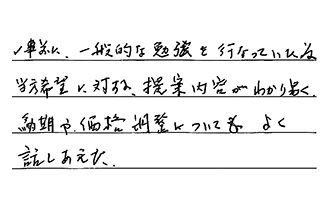 事前に、一般的な勉強を行なっていた為
当方希望に対する、提案内容がわかり易く、
納期や価格調整についても よく
話しあえた。